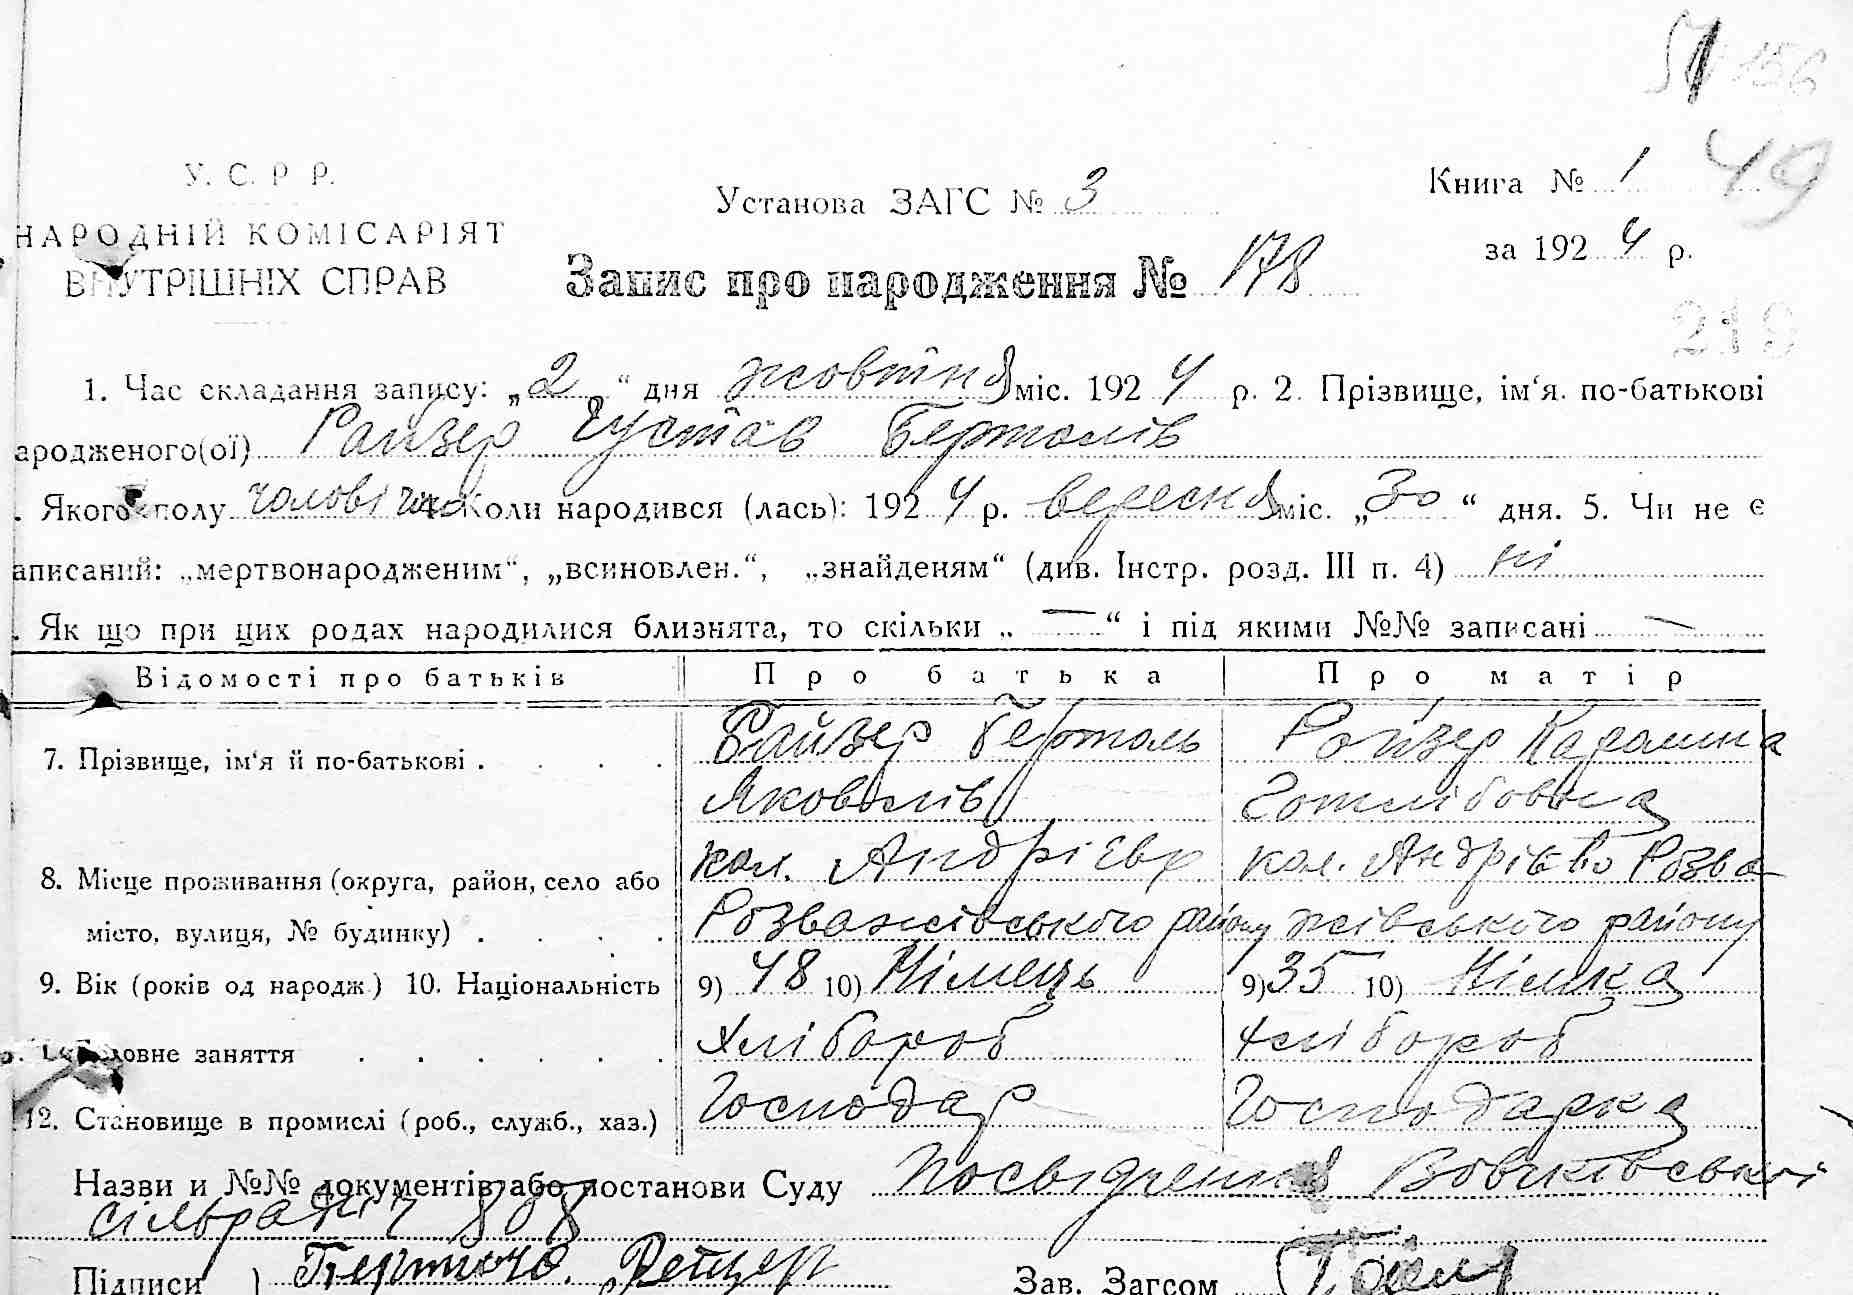 156
49
У. С. Р. Р.
НАРОДНІЙ КОМІСАРІЯТ
ВНУТРІШНІХ СПРАВ
Установа ЗАГС № 3
Книга № 1
за 1924 р.
Запис про народження № 178
219
1. Час складання запису: „2“ дня жовтня міс. 1924 р. 2. Прізвище, ім‘я. по-батькові
ародженого(ої) Райзер Густав Бертолів
. Якого полу чоловічи Коли народився (лась): 1924 р. вересня міс. „30“ дня. 5. Чи не є
аписаний: „мертвонародженим“, „всиновлен.“, „знайденям“ (див. Інстр. розд. III п. 4) ні
. Як що при цих родах народилися близнята, то скільки „—“ і під якими №№ записані —
Відомості про батьків Про батька Про матір
7. Прізвище, ім‘я й по-батькові . Райзер Бертоль Райзер Каролина
Яковлів Готлібовна
8. Місце проживання (округа, район, село або кол. Андрієвк кол. Андрієво Розва
місто, вулиця, № будинку) . Розважівського району жівського району
9. Вік (років од народж.) 10. Національність 9) 48 10) Німець 9) 35 10) Німка
овне заняття Хлібороб Хлібороб
12. Становище в промислі (роб., служб., хаз.) Господар Господарка
Назви и №№ документів або постанови Суду Посвідчення Вовчківської
сільради ч 808
Підписи ) Рейцер Зав. Загсом